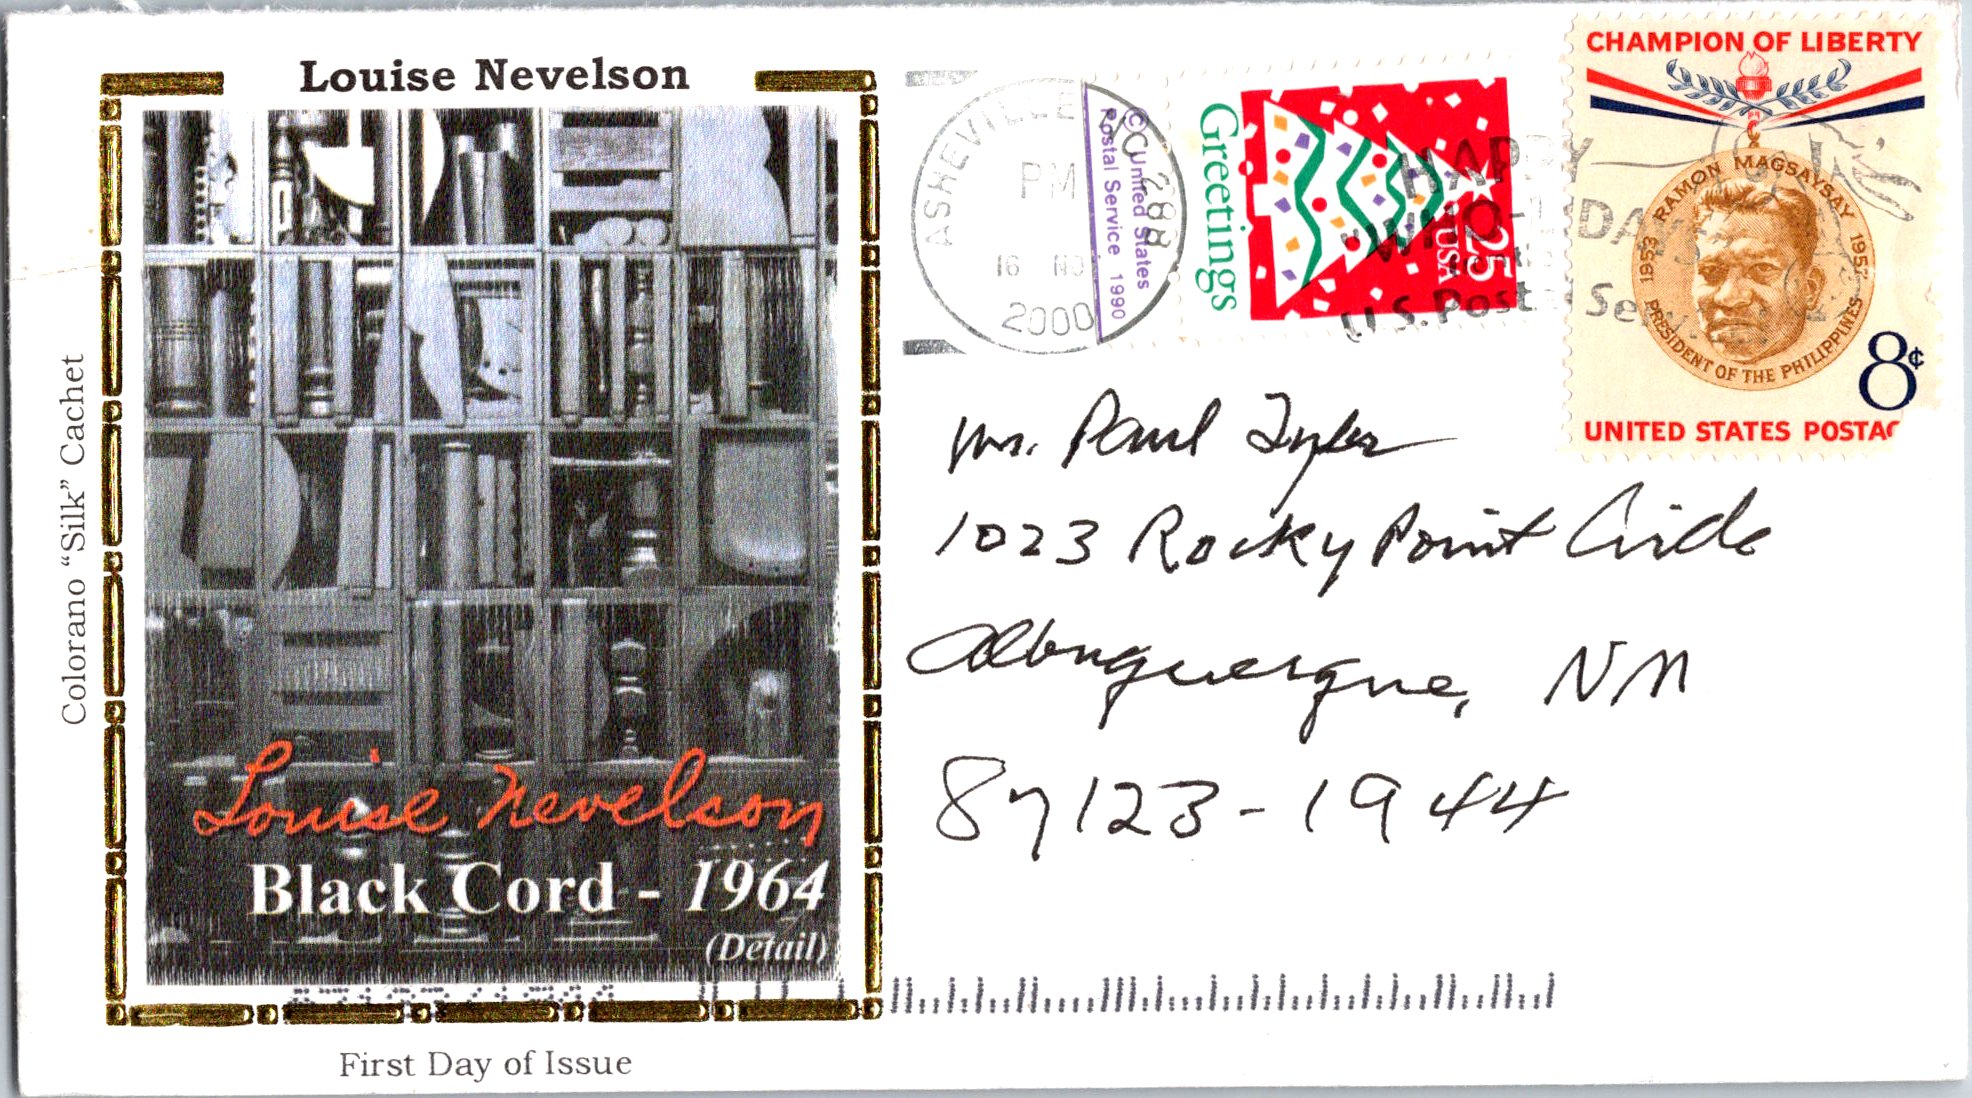 Louise Nevelson
Colorano "Silk" Cachet
Louise Nevelson
Black Cord - 1964
(Detail)
First Day of Issue
ASHEVILLE NC 288
PM
16 NO
2000
© United States
Postal Service 1990
Greetings
25
USA
HAPPY
WHO-LIDAYS
U.S. Postal Service
CHAMPION OF LIBERTY
RAMON MAGSAYSAY
1953 1957
PRESIDENT OF THE PHILIPPINES
8¢
UNITED STATES POSTAG
Mr. Paul Tyler
1023 Rocky Point Circle
Albuquerque, NM
87123-1944